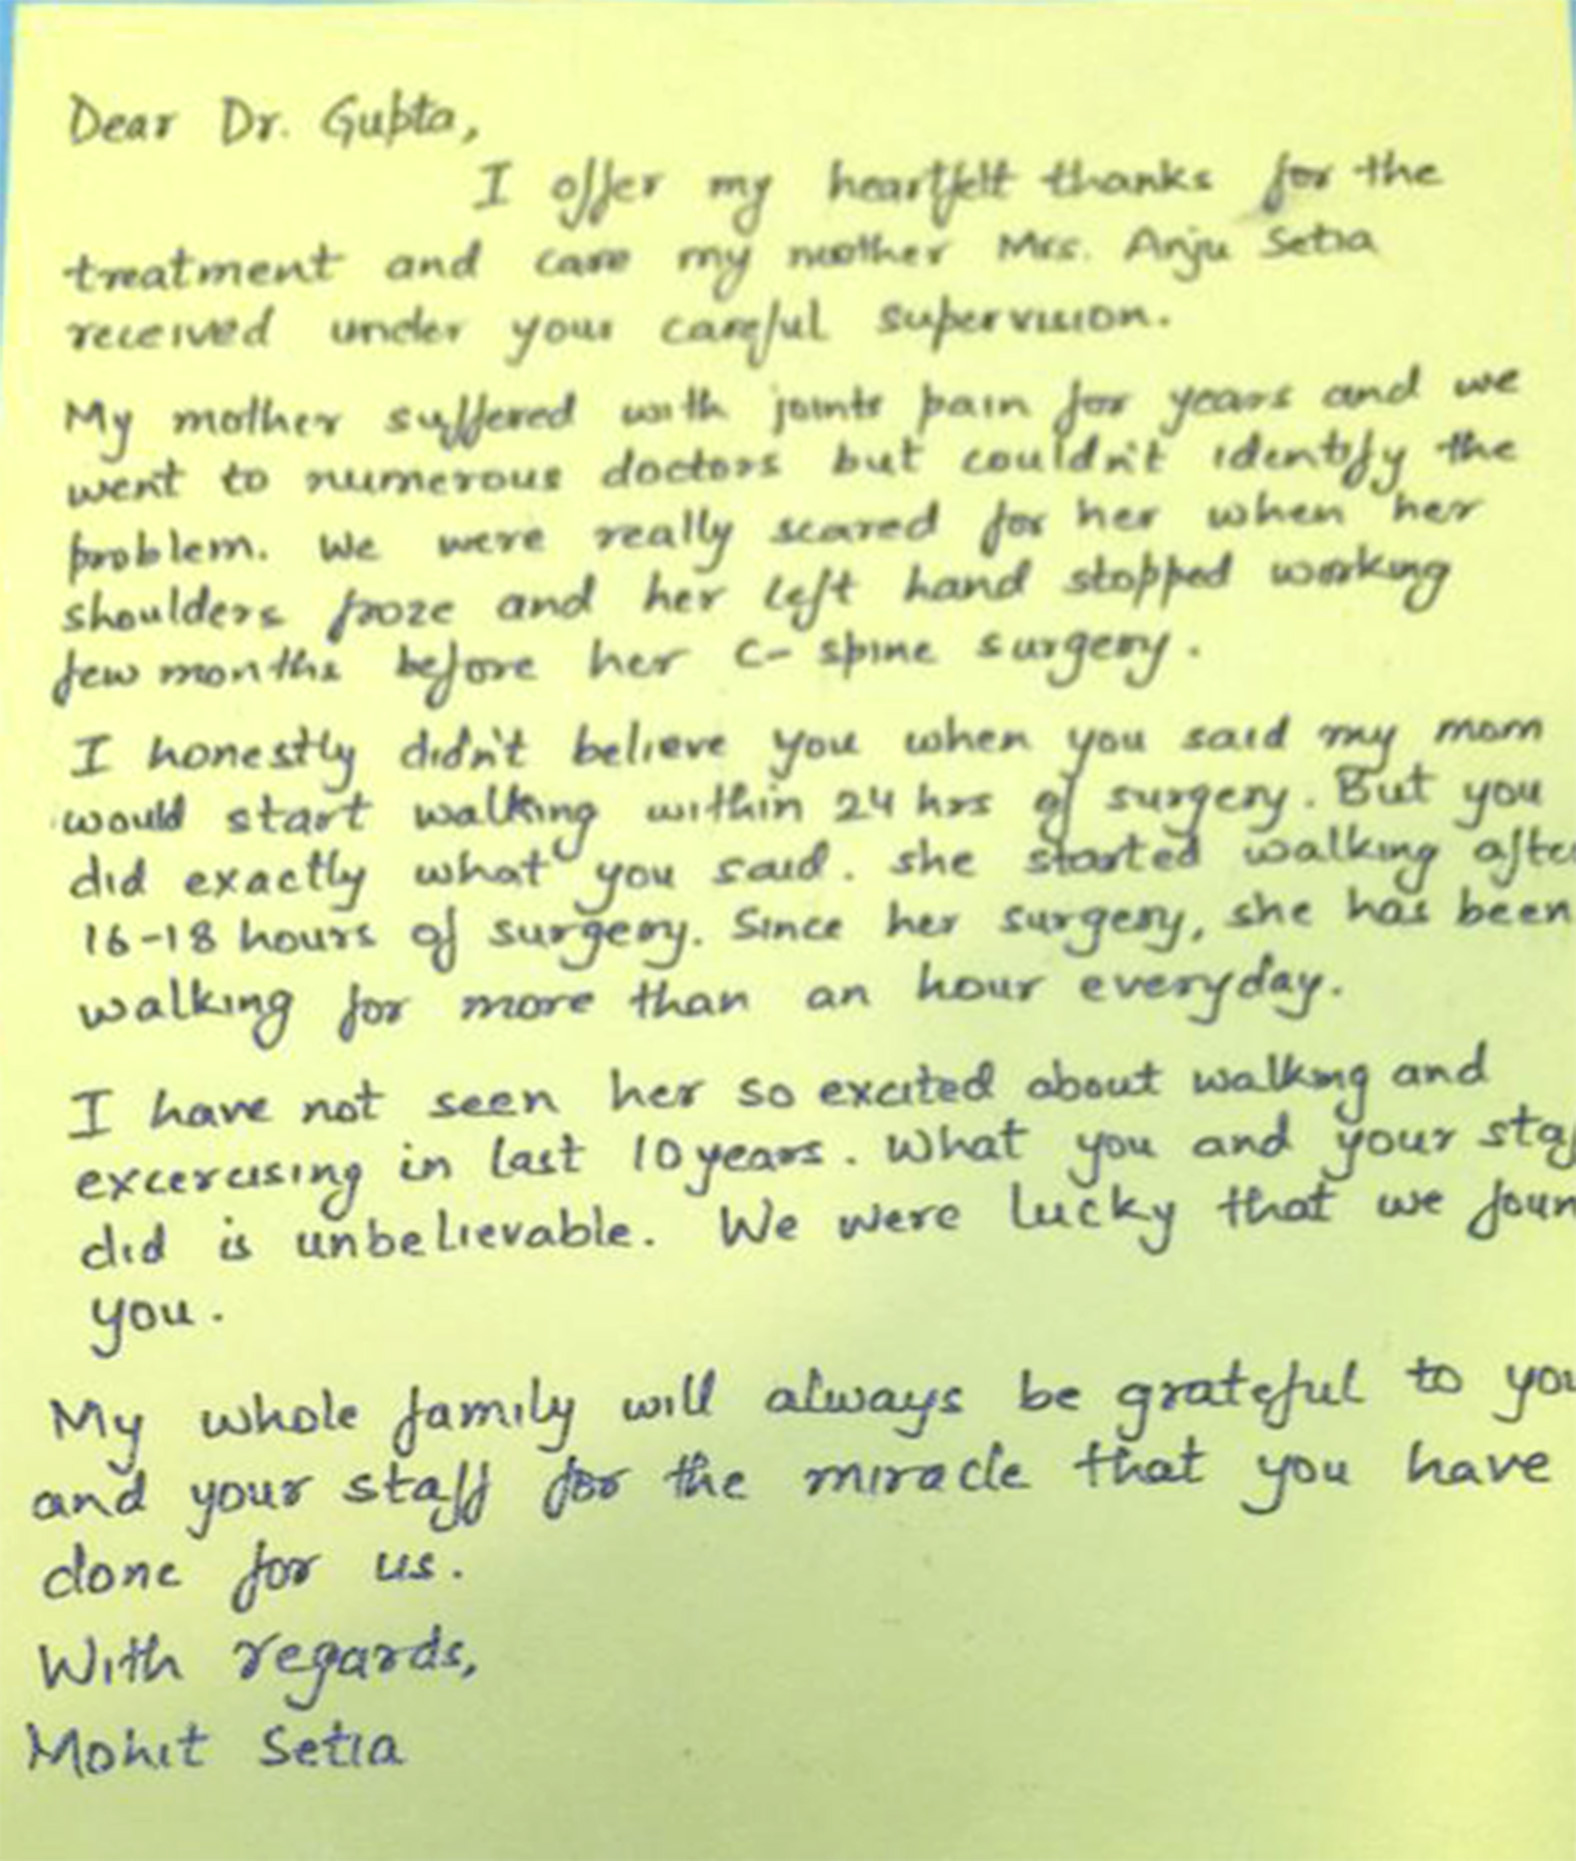 Dear Dr. Gupta,
I offer my heartfelt thanks for the
treatment and care my mother Mrs. Anju Setia
received under your careful supervision.
My mother suffered with joints pain for years and we
went to numerous doctors but couldn't identify the
problem. We were really scared for her when her
shoulders froze and her left hand stopped working
few months before her C-spine surgery.
I honestly didn't believe you when you said my mom
would start walking within 24 hrs of surgery. But you
did exactly what you said. she started walking afte
16-18 hours of surgery. Since her surgery, she has been
walking for more than an hour everyday.
I have not seen her so excited about walking and
excercising in last 10 years. What you and your staf
did is unbelievable. We were lucky that we foun
you.
My whole family will always be grateful to you
and your staff for the miracle that you have
done for us.
With regards,
Mohit Setia